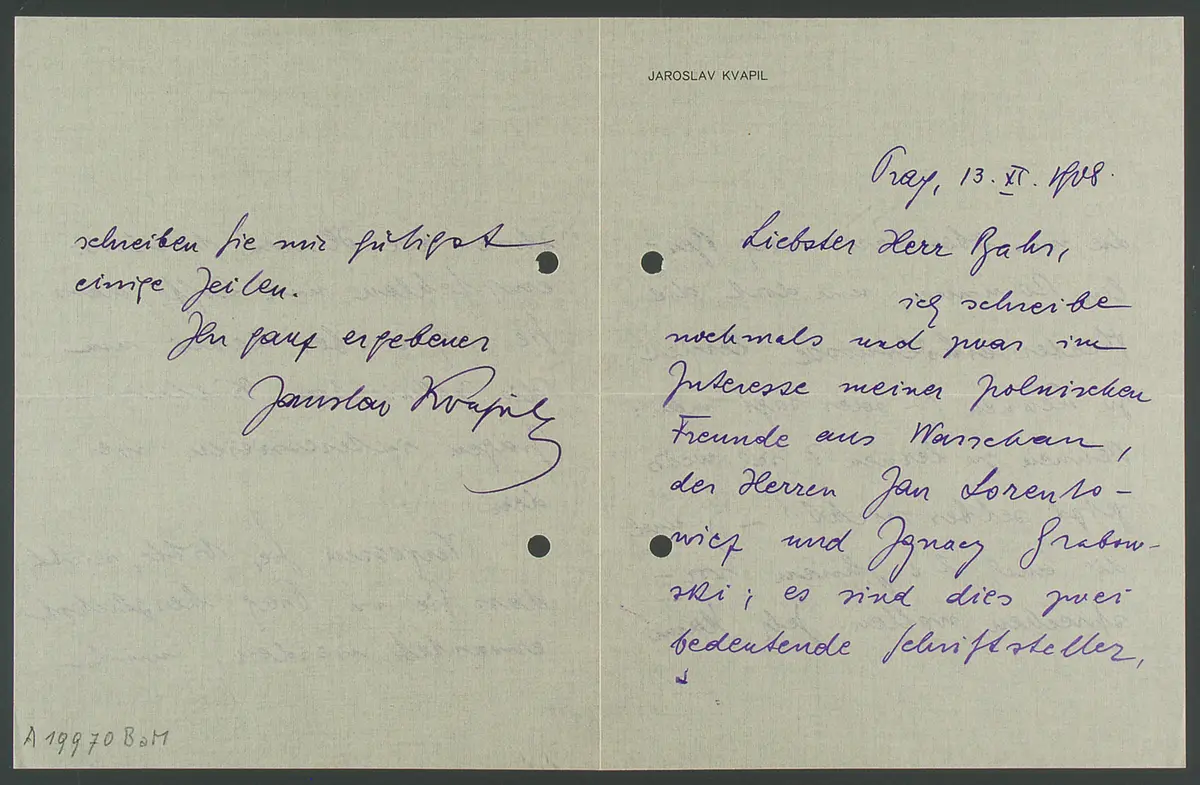 JAROSLAV KVAPIL
Prag, 13. XI. 1908.
Liebster Herr Bahr,
ich schreibe
nochmals und zwar im
Interesse meiner polnischen
Freunde aus Warschau,
der Herren Jan Lorento-
wicz und Ignacy Grabow-
ski; es sind dies zwei
bedeutende Schriftsteller,
schreiben Sie mir gütigst
einige Zeilen.
Ihr ganz ergebener
Jaroslav Kvapil
A 19970 BaM